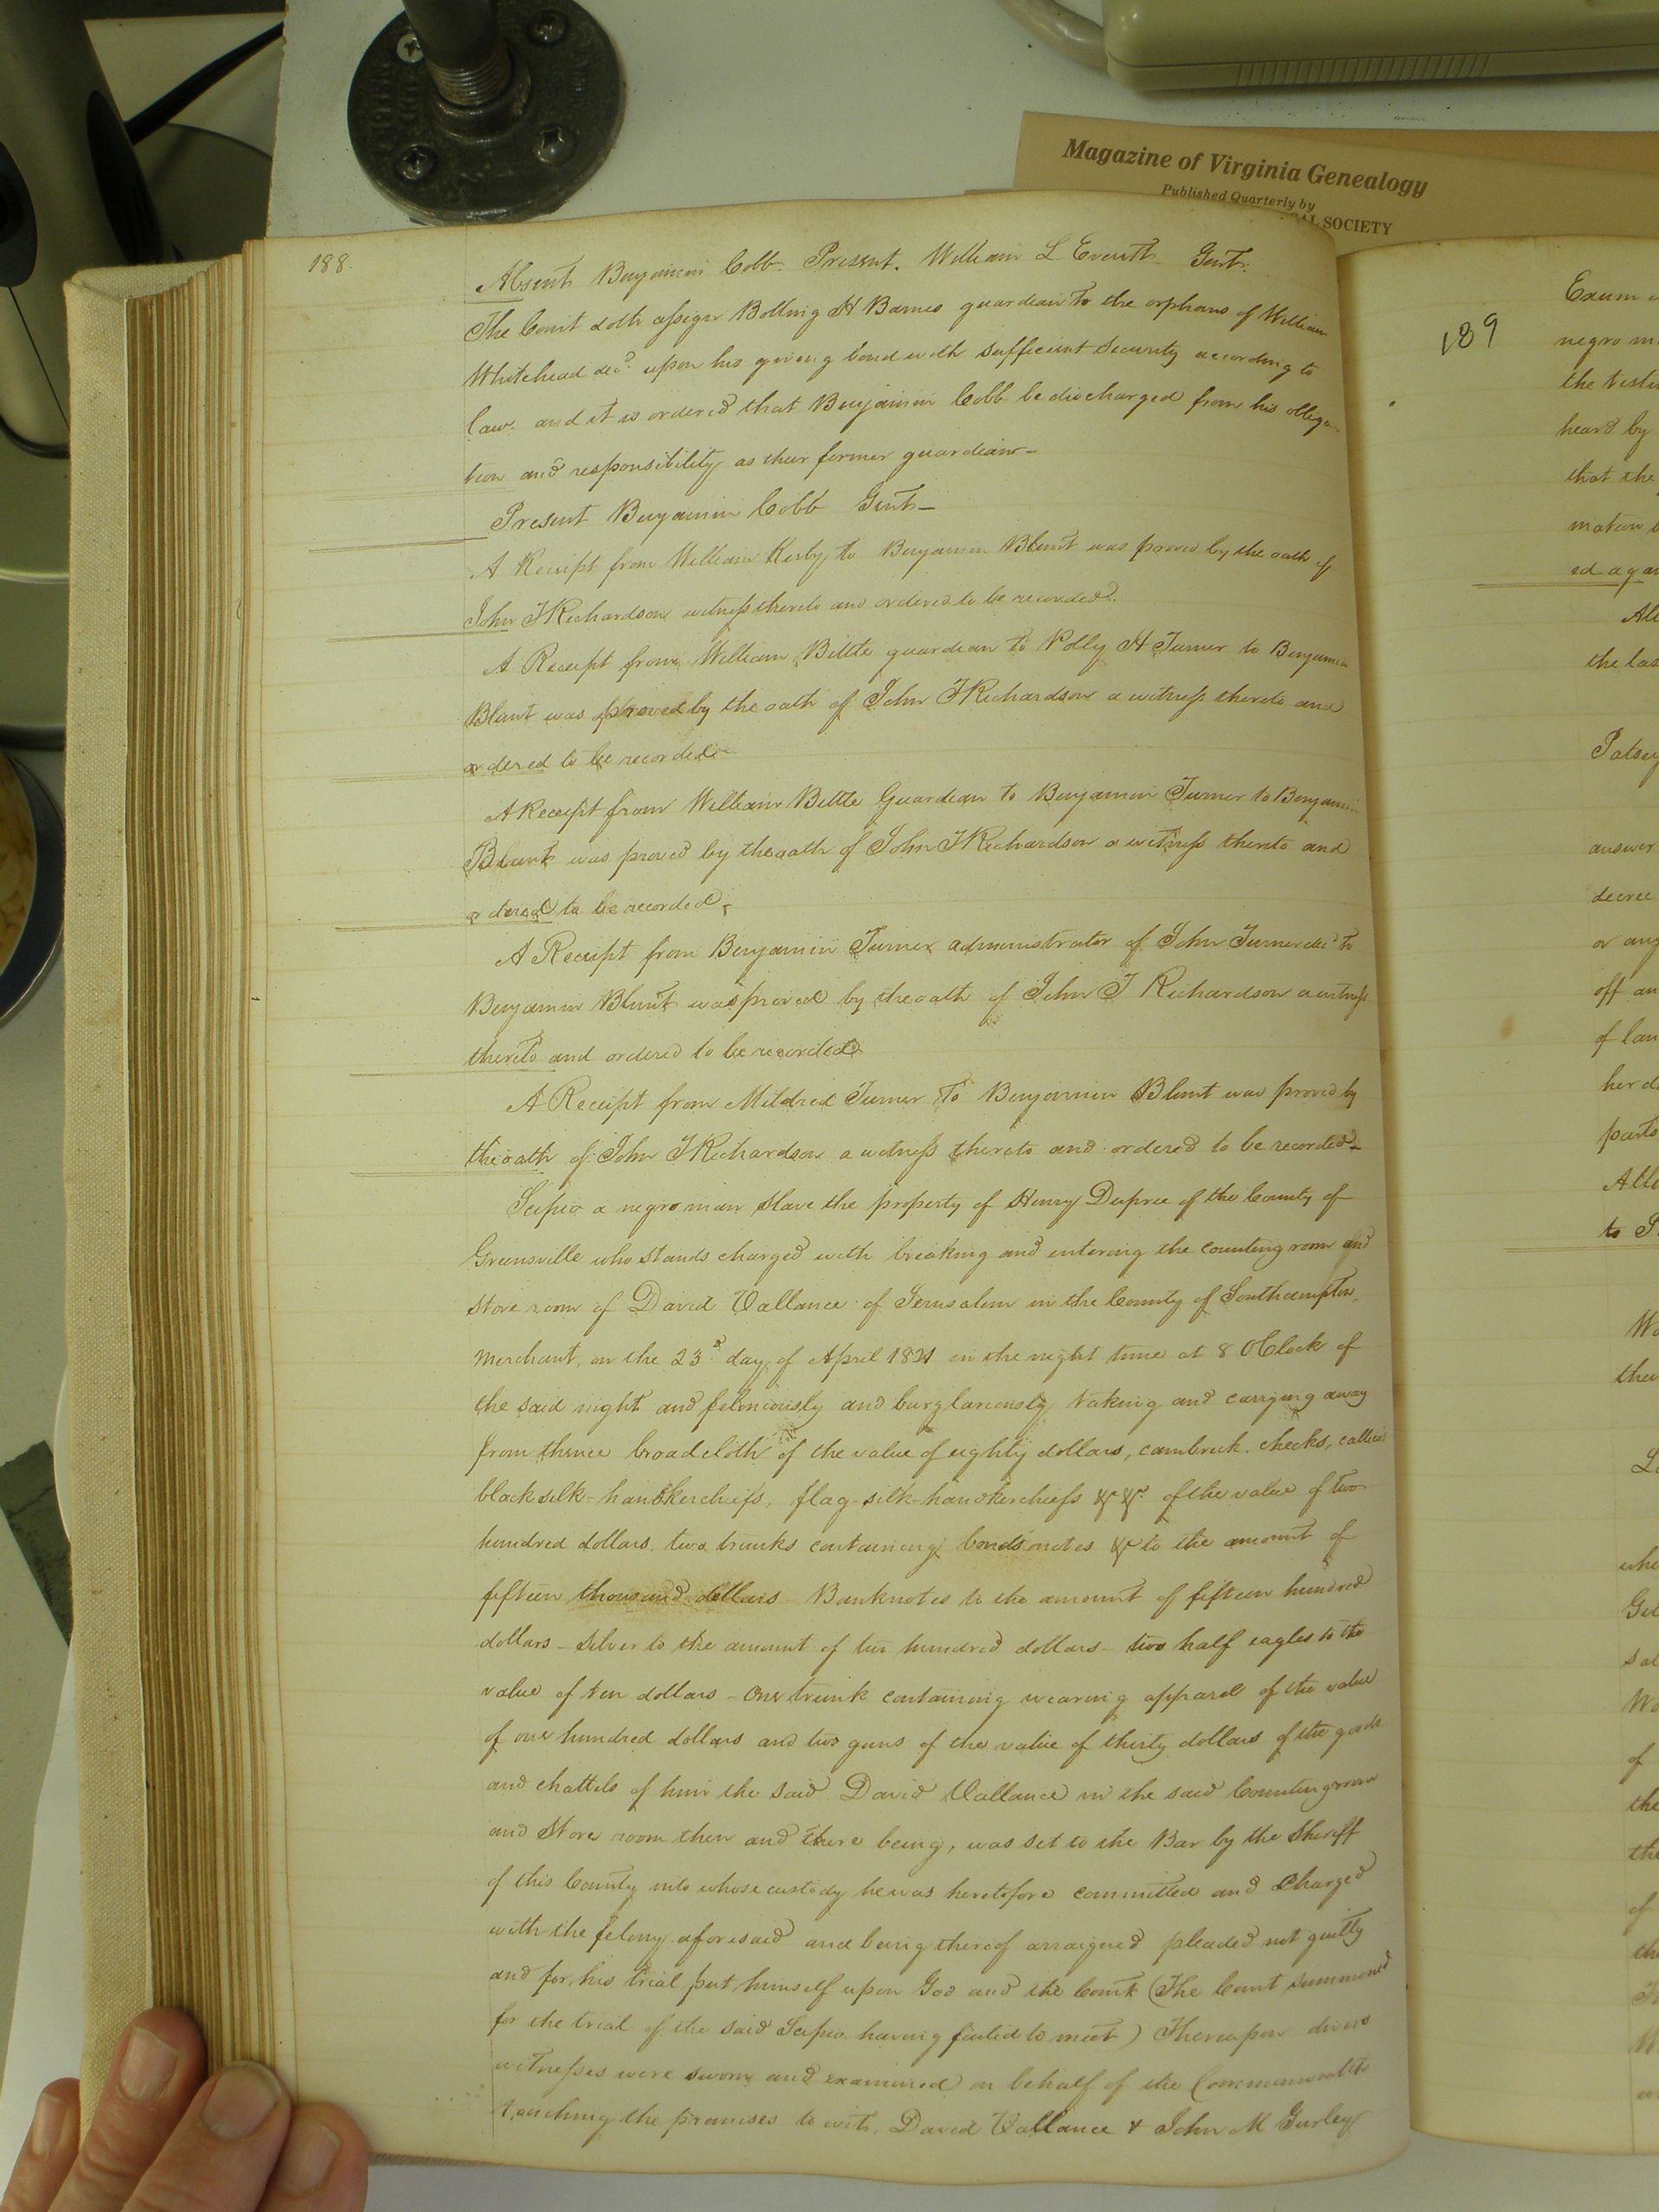 Magazine of Virginia Genealogy
Published Quarterly by
SOCIETY
188.
Absent Benjamin Cobb. Present. William L Everitt Gent.
The Court doth assign Bolling H Barnes guardian to the orphans of William
Whitehead decd. upon his giving bond with sufficient security according to
law. and it is ordered that Benjamin Cobb be discharged from his obliga
tion and responsibility as their former guardian—
Present Benjamin Cobb Gent—
A Receipt from William Kirby to Benjamin Blunt was proved by the oath of
John T Richardson witness thereto and ordered to be recorded.
A Receipt from William Bittle guardian to Polly H Turner to Benjamin
Blunt was proved by the oath of John T Richardson a witness thereto and
ordered to be recorded—
A Receipt from William Bittle Guardian to Benjamin Turner to Benjamin
Blunt was proved by the oath of John T Richardson a witness thereto and
ordered to be recorded,
A Receipt from Benjamin Turner administrator of John Turner decd to
Benjamin Blunt was proved by the oath of John T Richardson a witness
thereto and ordered to be recorded
A Receipt from Mildred Turner To Benjamin Blunt was proved by
the oath of John T Richardson a witness thereto and ordered to be recorded—
Scipio a negro man Slave the property of Henry Dupree of the County of
Greensville who stands charged with breaking and entering the counting room and
store room of David Vallance of Jerusalem in the County of Southampton,
Merchant, on the 23d day of April 1821 in the night time at 8 OClock of
the said night and feloniously and burglariously taking and carrying away
from thence broad cloth of the value of eighty dollars, cambrick. checks, callico
black silk-handkerchiefs, flag-silk-handkerchiefs &c &c. of the value of two
hundred dollars. two trunks containing bonds notes &c to the amount of
fifteen thousand dollars – Banknotes to the amount of fifteen hundred
dollars – Silver to the amount of two hundred dollars – two half eagles to the
value of ten dollars – One trunk containing wearing apparel of the value
of one hundred dollars and two guns of the value of thirty dollars of the goods
and chattels of him the said David Vallance in the said Counting room
and Store room then and there being, was set to the Bar by the Sheriff
of this County into whose custody he was heretofore committed and Charged
with the felony aforesaid and being thereof arraigned pleaded not guilty
and for his trial put himself upon God and the Court (The Court summoned
for the trial of the said Scipio having failed to meet) Thereupon divers
witnesses were sworn and examined on behalf of the Commonwealth
touching the premises to wit, David Vallance & John M Gurley
189
Exum
negro
the
heard by
that the
ed
the
Patsey
answer
decree
or any
off an
of
her
parts
to
of
the
of